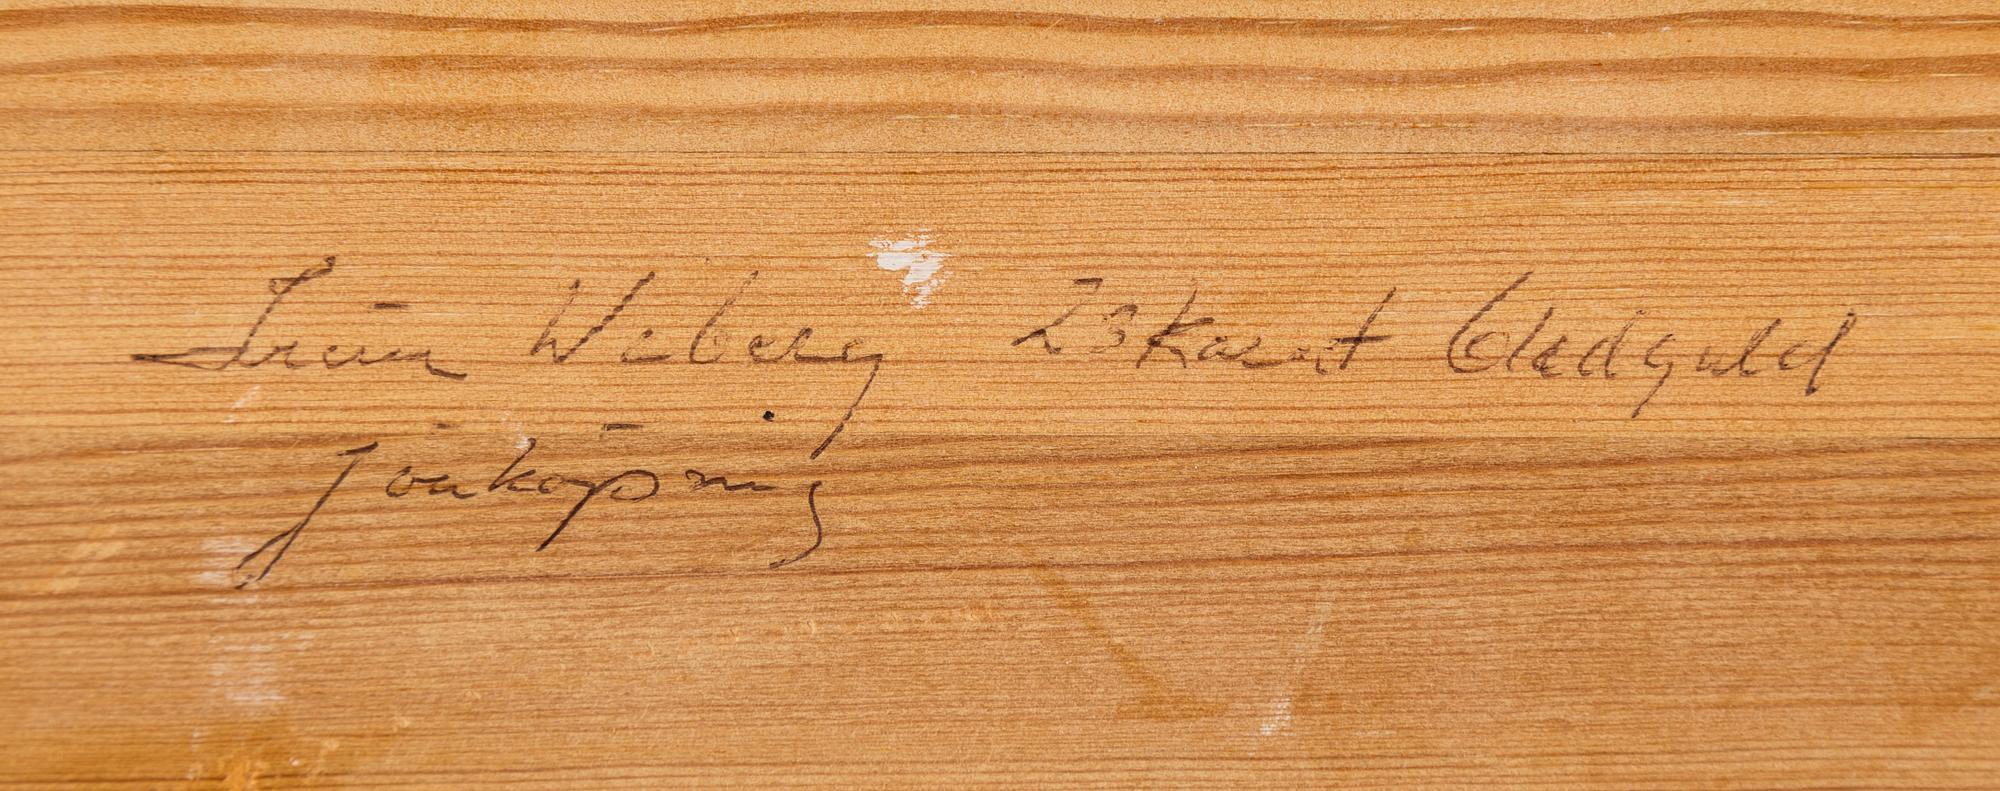 Weberg 23karat bladguld
jönköping